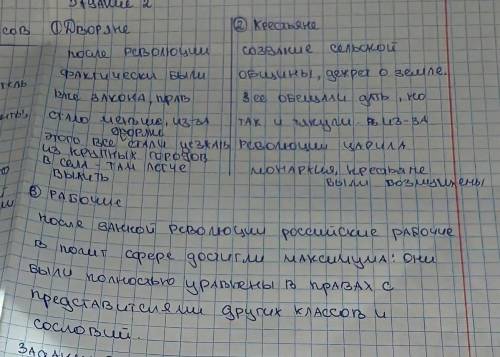 Задание 2
сов ① Дворяне
после революции
фактически были
вне закона, прав
стало меньше, из-за
этого все дворяне стали уезжать
из крупных городов
в села - там легче
выжить
② Крестьяне
создание сельской
общины, декрет о земле.
все обещали дать, но
так и не дали. из-за
революции царила
монархия, крестьяне
были возмущены
③ Рабочие
после революции российские рабочие
в полит сфере достигли максимума: они
были полностью уравнены в правах с
представителями других классов и
сословий.